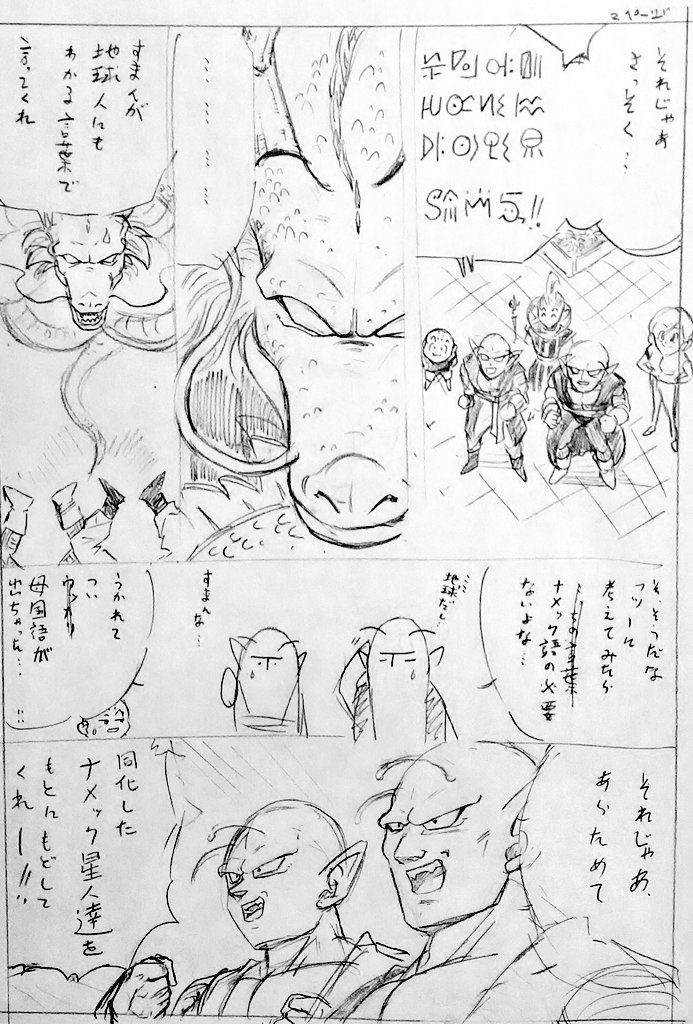 2ページ
それじゃあ
さっそく…
!!
…………
すまんが
地球人にも
わかる言葉で
言ってくれ
そ、そうだな
フツーに
考えてみたら
ナメック語の必要
ないよな…
…
地球だし…
すまんな…
うかれて
つい
母国語が
出ちゃった…!!
それじゃあ、
あらためて
同化した
ナメック星人達を
もとにもどして
くれー!!